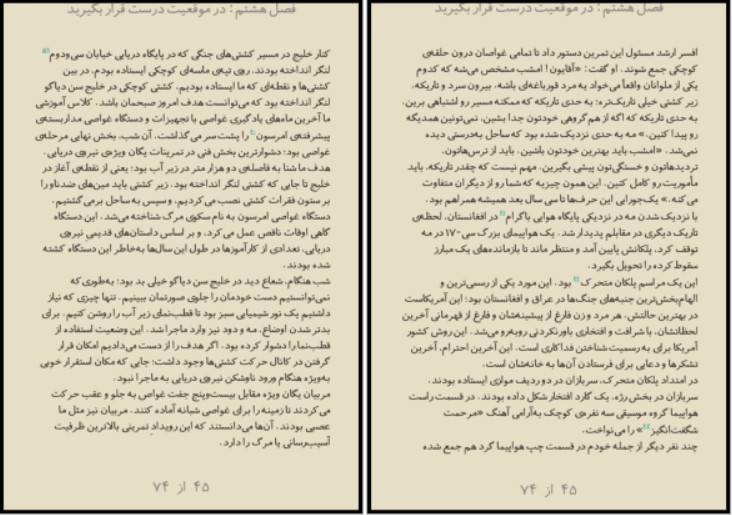 فصل هشتم : در موقعیت درست قرار بگیرید
کنار خلیج در مسیر کشتی‌های جنگی که در پایگاه دریایی خیابان سی‌ودوم
لنگر انداخته بودند، روی تپه‌ی ماسه‌ای کوچکی ایستاده بودم. در بین
کشتی‌ها و نقطه‌ای که ما ایستاده بودیم، کشتی کوچکی در خلیج سن دیاگو
لنگر انداخته بود که می‌توانست هدف امروز صبحمان باشد. کلاس آموزشی
ما آخرین ماه‌های یادگیری غواصی با تجهیزات و دستگاه غواصی مداربسته‌ی
پیشرفته‌ی امرسون را پشت‌سر می‌گذاشت. آن شب، بخش نهایی مرحله‌ی
غواصی بود؛ دشوارترین بخش فنی در تمرینات یگان ویژه‌ی نیروی دریایی.
هدف ما شنا به فاصله‌ی دو هزار متر در زیر آب بود؛ یعنی از نقطه‌ی آغاز در
خلیج تا جایی که کشتی لنگر انداخته بود. زیر کشتی باید مین‌های ضدناو را
بر ستون فقرات کشتی نصب می‌کردیم، و سپس به ساحل برمی‌گشتیم.
دستگاه غواصی امرسون به نام سکوی مرگ شناخته می‌شد. این دستگاه
گاهی اوقات ناقص عمل می‌کرد، و بر اساس داستان‌های قدیمی نیروی
دریایی، تعدادی از کارآموزها در طول این سال‌ها به‌خاطر این دستگاه کشته
شده بودند.
شب هنگام، شعاع دید در خلیج سن دیاگو خیلی بد بود؛ به‌طوری‌که
نمی‌توانستیم دست خودمان را جلوی صورتمان ببینیم. تنها چیزی که نیاز
داشتیم یک نور شیمیایی سبز بود تا قطب‌نمای زیر آب را روشن کنیم. برای
بدتر شدن اوضاع، مه و دود نیز وارد ماجرا شد. این وضعیت استفاده از
قطب‌نما را دشوار کرده بود. اگر هدف را از دست می‌دادیم امکان قرار
گرفتن در کانال حرکت کشتی‌ها وجود داشت؛ جایی که مکان استقرار خوبی
به‌ویژه هنگام ورود ناوشکن نیروی دریایی به ماجرا نبود.
مربیان یگان ویژه مقابل بیست‌وپنج جفت غواص به جلو و عقب حرکت
می‌کردند تا زمینه را برای غواصی شبانه آماده کنند. مربیان نیز مثل ما
عصبی بودند. آن‌ها می‌دانستند که این رویداد تمرینی بالاترین ظرفیت
آسیب‌رسانی یا مرگ را دارد.
۴۵ از ۷۴
فصل هشتم : در موقعیت درست قرار بگیرید
افسر ارشد مسئول این تمرین دستور داد تا تمامی غواصان درون حلقه‌ی
کوچکی جمع شوند. او گفت: «آقایون! امشب مشخص می‌شه که کدوم
یکی از ملوانان واقعاً می‌خواد یه مرد قورباغه‌ای باشه. بیرون سرد و تاریکه.
زیر کشتی خیلی تاریک‌تره؛ به حدی تاریکه که ممکنه مسیر رو اشتباهی برین.
به حدی تاریکه که اگه از هم‌گروهی خودتون جدا بشین، نمی‌تونین همدیگه
رو پیدا کنین.» مه به حدی نزدیک شده بود که ساحل به‌درستی دیده
نمی‌شد. «امشب باید بهترین خودتون باشین. باید از ترس‌هاتون،
تردیدهاتون و خستگی‌تون پیشی بگیرین. مهم نیست که چقدر تاریکه، باید
مأموریت رو کامل کنین. این همون چیزیه که شما رو از دیگران متفاوت
می‌کنه.» یک‌جورایی این حرف‌ها تا سی سال بعد همیشه همراهم بود.
با نزدیک شدن مه در نزدیکی پایگاه هوایی باگرام در افغانستان، لحظه‌ی
تاریک دیگری در مقابلم پدیدار شد. یک هواپیمای بزرگ سی-۱۷ در مه
توقف کرد، پلکانش پایین آمد و منتظر ماند تا بازمانده‌های یک مبارز
سقوط‌کرده را تحویل بگیرد.
این یک مراسم پلکان متحرک بود. این مورد یکی از رسمی‌ترین و
الهام‌بخش‌ترین جنبه‌های جنگ‌ها در عراق و افغانستان بود؛ این آمریکاست
در بهترین حالتش. هر مرد و زن فارغ از پیشینه‌شان و فارغ از قهرمانی آخرین
لحظاتشان، با شرافت و افتخاری باورنکردنی روبه‌رو می‌شد. این روش کشور
آمریکا برای به‌رسمیت‌شناختن فداکاری است. این آخرین احترام، آخرین
تشکرها و دعایی برای فرستادن آن‌ها به خانه‌شان است.
در امتداد پلکان متحرک، سربازان در دو ردیف موازی ایستاده بودند.
سربازان در بخش رژه، یک گارد افتخار شکل داده بودند. در قسمت راست
هواپیما گروه موسیقی سه نفره‌ی کوچک به‌آرامی آهنگ «مرحمت
شگفت‌انگیز» را می‌نواخت.
چند نفر دیگر از جمله خودم در قسمت چپ هواپیما گرد هم جمع شده
۴۵ از ۷۴